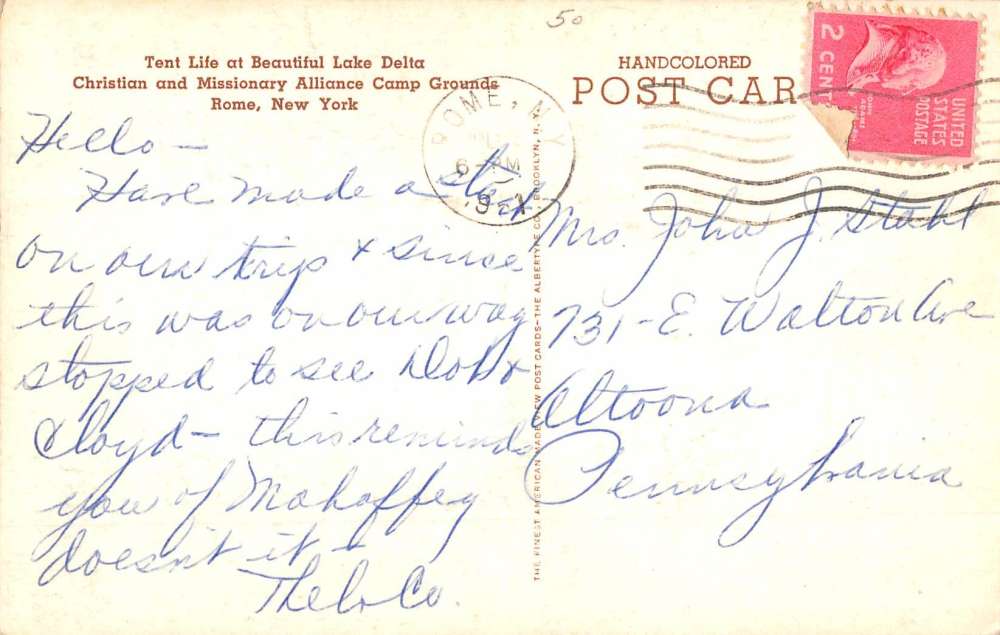 50
Tent Life at Beautiful Lake Delta
Christian and Missionary Alliance Camp Grounds
Rome, New York
HANDCOLORED
POST CAR
UNITED
STATES
POSTAGE
JOHN
ADAMS
2 CENT
ROME, N.Y.
6 PM
Hello —
Have made a start
on our trip & since
this was on our way
stopped to see Dot &
Cloyd — this reminds
you of Mahaffey
doesn't it —
Thel & Co.
THE FINEST AMERICAN MADE VIEW POST CARDS—THE ALBERTYPE CO., BROOKLYN, N.Y.
Mrs. John J. Stahl
731 - E. Walton Ave
Altoona
Pennsylvania